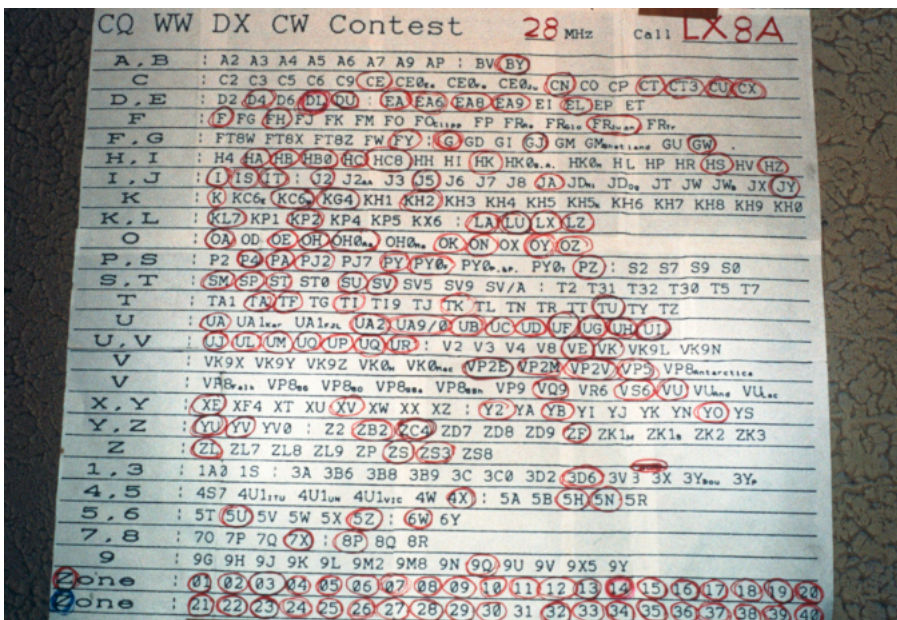 CQ WW DX CW Contest 28 MHz Call LX8A
A,B : A2 A3 A4 A5 A6 A7 A9 AP : BV BY
C : C2 C3 C5 C6 C9 CE CE0 CE0 CE0 CN CO CP CT CT3 CU CX
D,E : D2 D4 D6 DL DU : EA EA6 EA8 EA9 EI EL EP ET
F : F FG FH FJ FK FM FO FO FP FR FR FR FR
F,G : FT8W FT8X FT8Z FW FY : G GD GI GJ GM GM GU GW
H,I : H4 HA HB HB0 HC HC8 HH HI HK HK0 HK0 HL HP HR HS HV HZ
I,J : I IS IT : J2 J2 J3 J5 J6 J7 J8 JA JD JD JT JW JW JX JY
K : K KC6 KC6 KG4 KH1 KH2 KH3 KH4 KH5 KH5K KH6 KH7 KH8 KH9 KH0
K,L : KL7 KP1 KP2 KP4 KP5 KX6 : LA LU LX LZ
O : OA OD OE OH OH0 OH0 OK ON OX OY OZ
P,S : P2 P4 PA PJ2 PJ7 PY PY0 PY0 PY0 PZ : S2 S7 S9 S0
S,T : SM SP ST ST0 SU SV SV5 SV9 SV/A : T2 T31 T32 T30 T5 T7
T : TA1 TA TF TG TI TI9 TJ TK TL TN TR TT TU TY TZ
U : UA UA1 UA1 UA2 UA9/0 UB UC UD UF UG UH UI
U,V : UJ UL UM UO UP UQ UR : V2 V3 V4 V8 VE VK VK9L VK9N
V : VK9X VK9Y VK9Z VK0 VK0 VP2E VP2M VP2V VP5 VP8antarctica
V : VP8 VP8 VP8 VP8 VP8 VP9 VQ9 VR6 VS6 VU VU VU
X,Y : XE XF4 XT XU XV XW XX XZ : Y2 YA YB YI YJ YK YN YO YS
Y,Z : YU YV YV0 : Z2 ZB2 ZC4 ZD7 ZD8 ZD9 ZF ZK1 ZK1 ZK2 ZK3
Z : ZL ZL7 ZL8 ZL9 ZP ZS ZS3 ZS8
1,3 : 1A0 1S : 3A 3B6 3B8 3B9 3C 3C0 3D2 3D6 3V 3X 3Y 3Y
4,5 : 4S7 4U1ITU 4U1UN 4U1VIC 4W 4X : 5A 5B 5H 5N 5R
5,6 : 5T 5U 5V 5W 5X 5Z : 6W 6Y
7,8 : 7O 7P 7Q 7X : 8P 8Q 8R
9 : 9G 9H 9J 9K 9L 9M2 9M8 9N 9Q 9U 9V 9X5 9Y
Zone : 01 02 03 04 05 06 07 08 09 10 11 12 13 14 15 16 17 18 19 20
Zone : 21 22 23 24 25 26 27 28 29 30 31 32 33 34 35 36 37 38 39 40